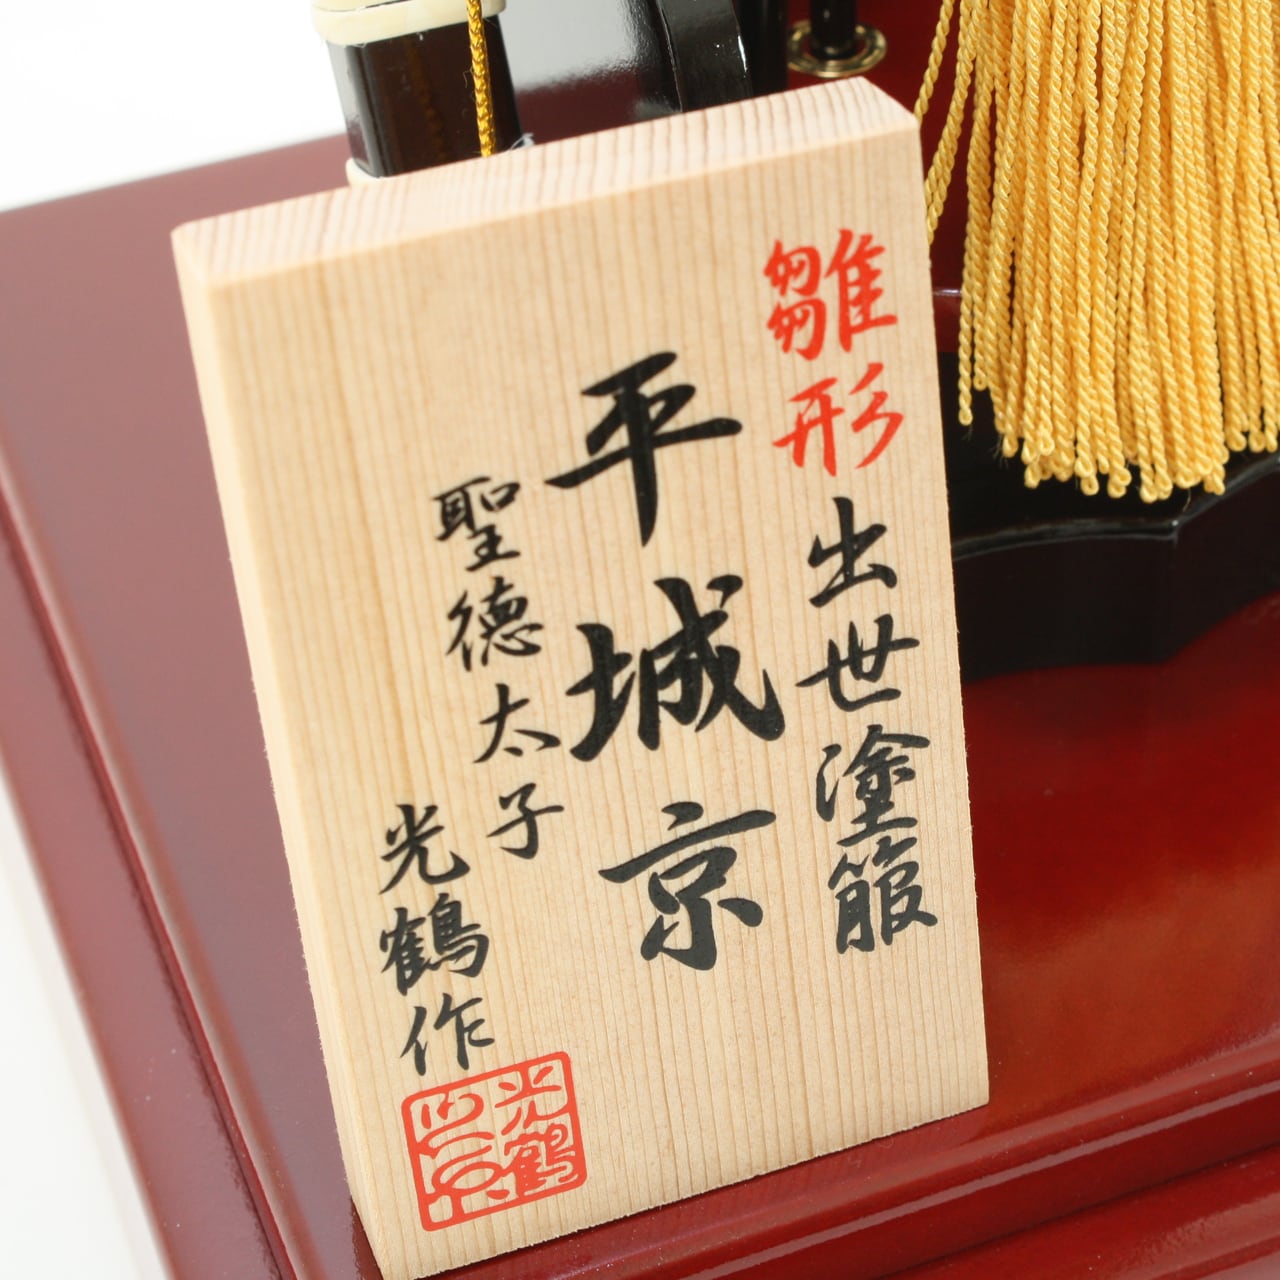 雛形出世塗箙
平城京
聖徳太子
光鶴作
光鶴